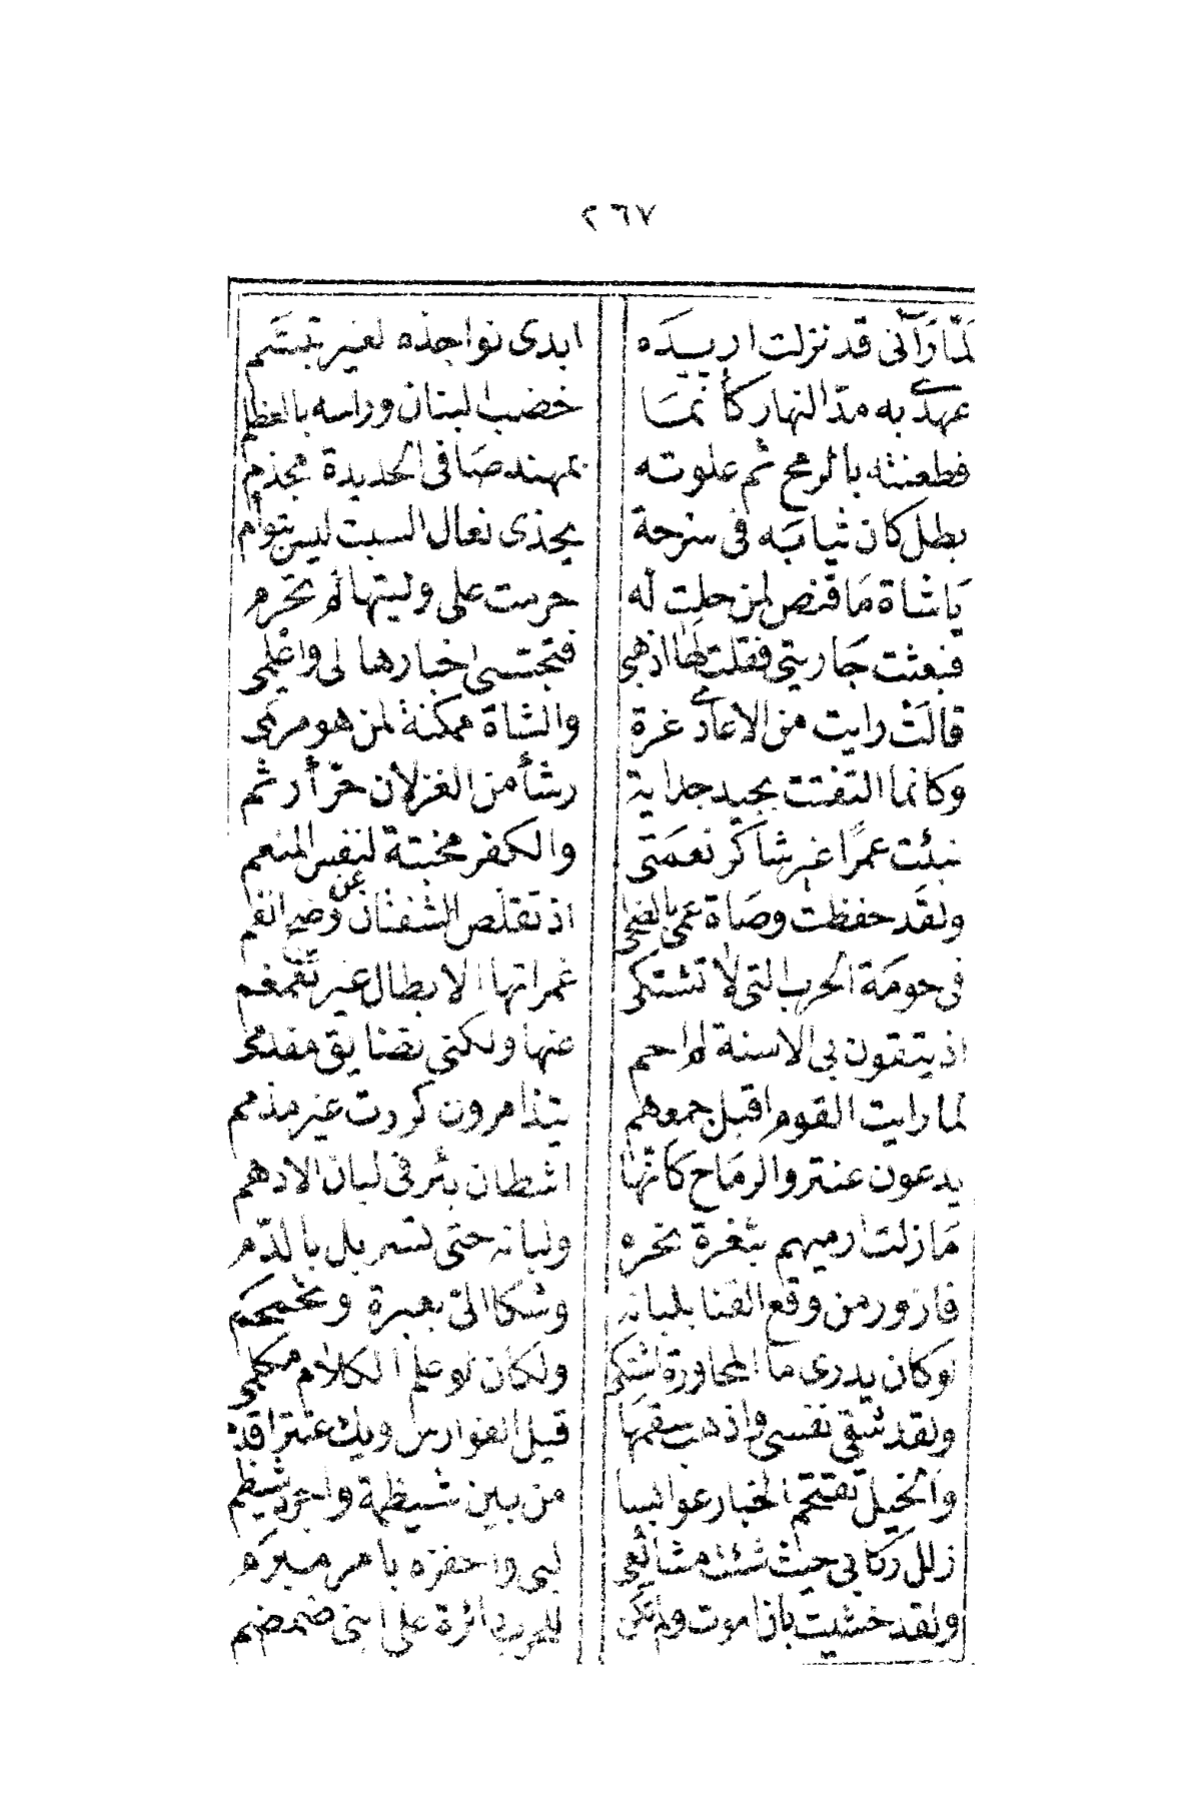 ٢٦٧
لمّا رَآنى قد نزلت اريدَه ابدى نواجذه لغير تبسّم
عهدى به مدّ النهار كأنّمَا خضب البنان وراسه بالعظلم
فطعنته بالرمح ثم علوته بمهند صَافى الحديدة مجذم
بطل كان ثيابَه فى سَرحة يحذى نعال السبت ليس بتوأم
يَا شاة مَا قنص لمن حلت له حرمت على وليتها لم تحرم
فبعثت جَاريتي فقلت لها اذهبي فتجسسى اخبارها لى واعْلمي
قالَتْ رايت من الاعادى غرة والشاة ممكنة لمن هو مرتمى
وكانما التفتت بجيد جداية رشأ من الغزلان حرّ أرثم
نبئت عمرًا غير شاكر نعمَتى والكفر مخبثة لنفس المنعم
ولقد حفظت وصَاة عمى بالضحى اذ تقلص الشفتان عن وضح الفم
فى حومَة الحرب التي لا تشتكى غمراتها الابطال غير تغمغم
اذ يتقون بي الاسنة لم احم عنها ولكنى تضايق مقدمى
لما رايت القوم اقبل جمعهم يتذامرون كررت غير مذمم
يدعون عنتر والرمَاح كَأنّهَا اشطان بئر فى لبان الادهم
مَا زلت ارميهم بثغرة نحره ولبانه حتى تسربل بالدّم
فازور من وقع القنا بلبانه وشكا الىّ بعبرة وتحمحم
لو كان يدرى ما المحاورة اشتكى ولكان لو علم الكلام مكلمى
ولقد شفى نفسى واذهب سقمَهَا قيل الفوارس ويك عنتر اقدم
والخيل تقتحم الخبار عوابسا من بين شيظمة واجرد شيظم
زلل ركابي حيث شئت مشايعى لبي واحفزه بامر مبرَم
ولقد خشيت بان اموت ولم تكن للحرب دائرة على ابنى ضمضم